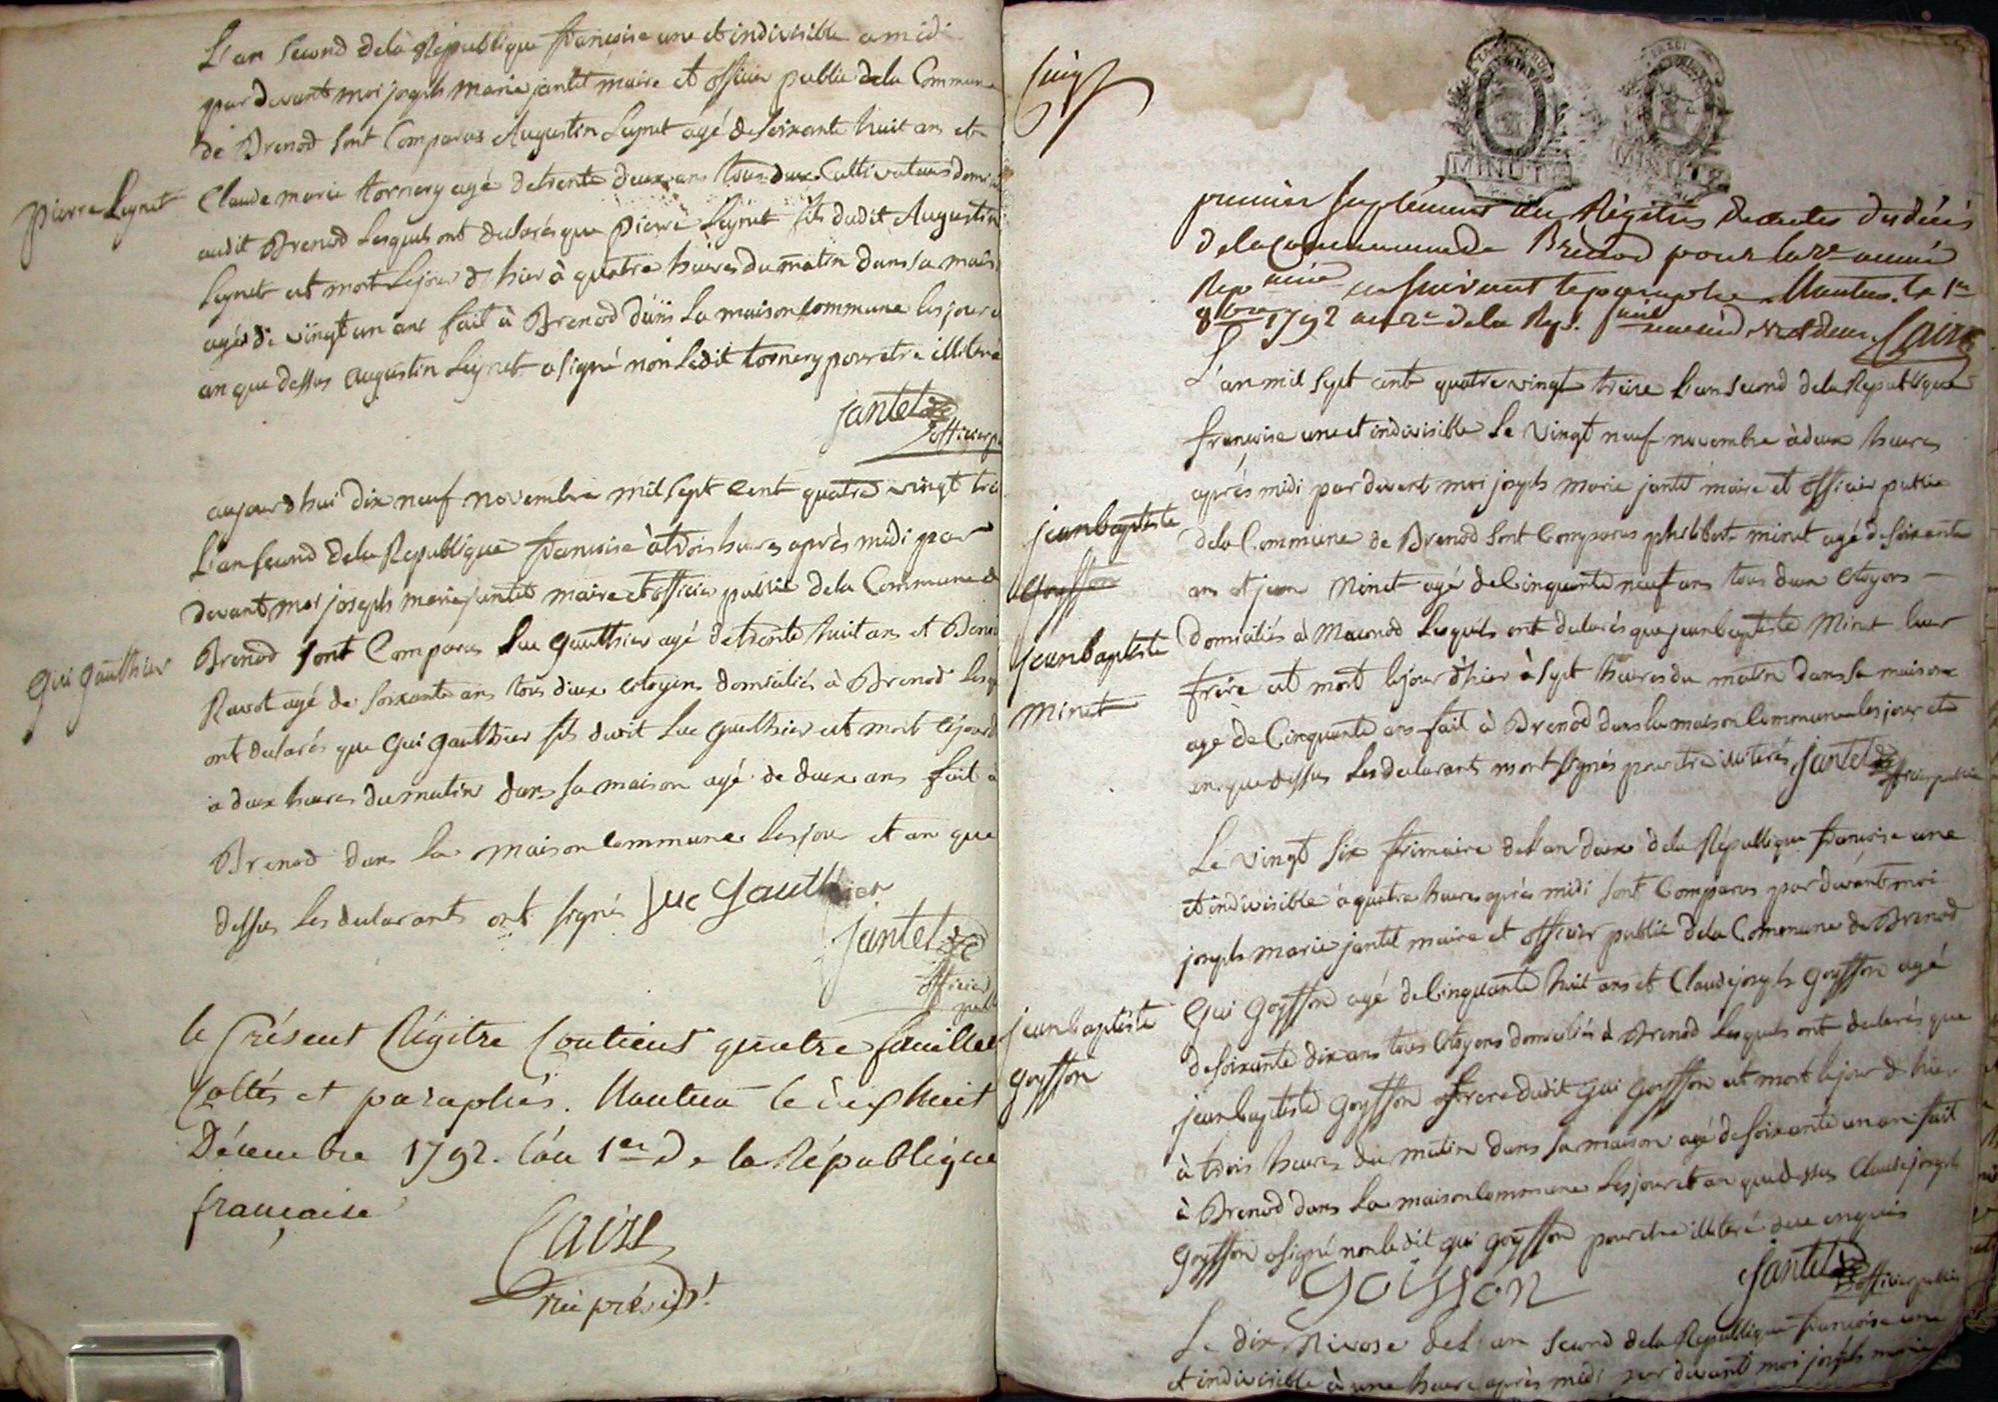 L'an second de la Republique francoise une et indivisible a midi
par devant moi joseph marie jantet maire et officier public de la Commune
de Brenod sont Comparus Augustin Leynet agé de soixante huit ans et
pierre Leynet
Claude marie tornery agé de trente deux ans tous deux Cultivateurs domi
audit Brenod Lesquels ont declarés que pierre Leynet fils dudit Augustin
Leynet est mort Le jour d'hier à quatre heures du matin dans sa maison
agé de vingt un ans fait à Brenod dans la maison commune les jour et
an que dessus augustin Leynet a signé non Ledit tornery pour etre illiteré
jantet
officier p
aujourd'hui dix neuf novembre mil sept cent quatre vingt trei
L'an second de la Republique francoise à trois heures après midi par
devant moi joseph marie jantet maire et officier public de la Commune de
Brenod sont Comparus Luc gauthier agé de trente huit ans et
gui gauthier
Ravot agé de soixante ans tous deux citoyens domiciliés à Brenod lesq
ont declarés que gui gauthier fils dudit Luc gauthier est mort ce jourd
a deux heures du matin dans sa maison agé de deux ans fait à
Brenod dans la maison commune les jour et an que
dessus les declarants ont signés Luc Gauthier
jantet
officier
publ
le présent Régitre Contient quatre feuillets
Cottés et paraphés. Nantua le dix huit
Décembre 1792. l'an 1er De la République
française
Caire
vice présidt.
Cinq
MINUTE
MINUTE
premier suplément au Régitres des actes des décés
de la commune de Brenod pour la 2e année
Rep suivant le paraphe Nantua le 1er
8bre 1792 an 2e de la Rep. Caire
L'an mil sept cent quatre vingt treise L'an second de la Republique
françoise une et indivisible Le vingt neuf novembre à deux heures
après midi par devant moi joseph marie jantet maire et officier public
jean baptiste
goyffon
de la Commune de Brenod sont Comparus philibert minet agé de soixante
ans et jean Minet agé de Cinquante neuf ans tous deux citoyens
jean baptiste
minet
domiciliés à Macnod Lesquels ont declarés que jean baptiste Minet leur
frère est mort le jour d'hier à sept heures du matin dans sa maison
agé de Cinquante ans fait à Brenod dans la maison Commune les jour et
an que dessus Les declarants n'ont signés pour etre illiterés jantet
officier public
Le vingt six frimaire de L'an deux de la République françoise une
et indivisible à quatre heures après midi sont Comparus par devant moi
joseph marie jantet maire et officier public de la Commune de Brenod
gui goyffon agé de Cinquante huit ans et Claude joseph goyffon agé
jean baptiste
goyffon
de soixante dix ans tous citoyens domiciliés à Brenod Lesquels ont declarés que
jean baptiste goyffon frere dudit gui goyffon est mort le jour d'hier
à trois heures du matin dans sa maison agé de soixante un an fait
à Brenod dans La maison Commune Les jour et an que dessus Claude joseph
goyffon a signé non ledit gui goyffon pour etre illiteré de ce enquis
goiffon
jantet
officier public
Le dix Nivose de L'an second de la République francoise une
et indivisible à une heure après midi par devant moi joseph marie